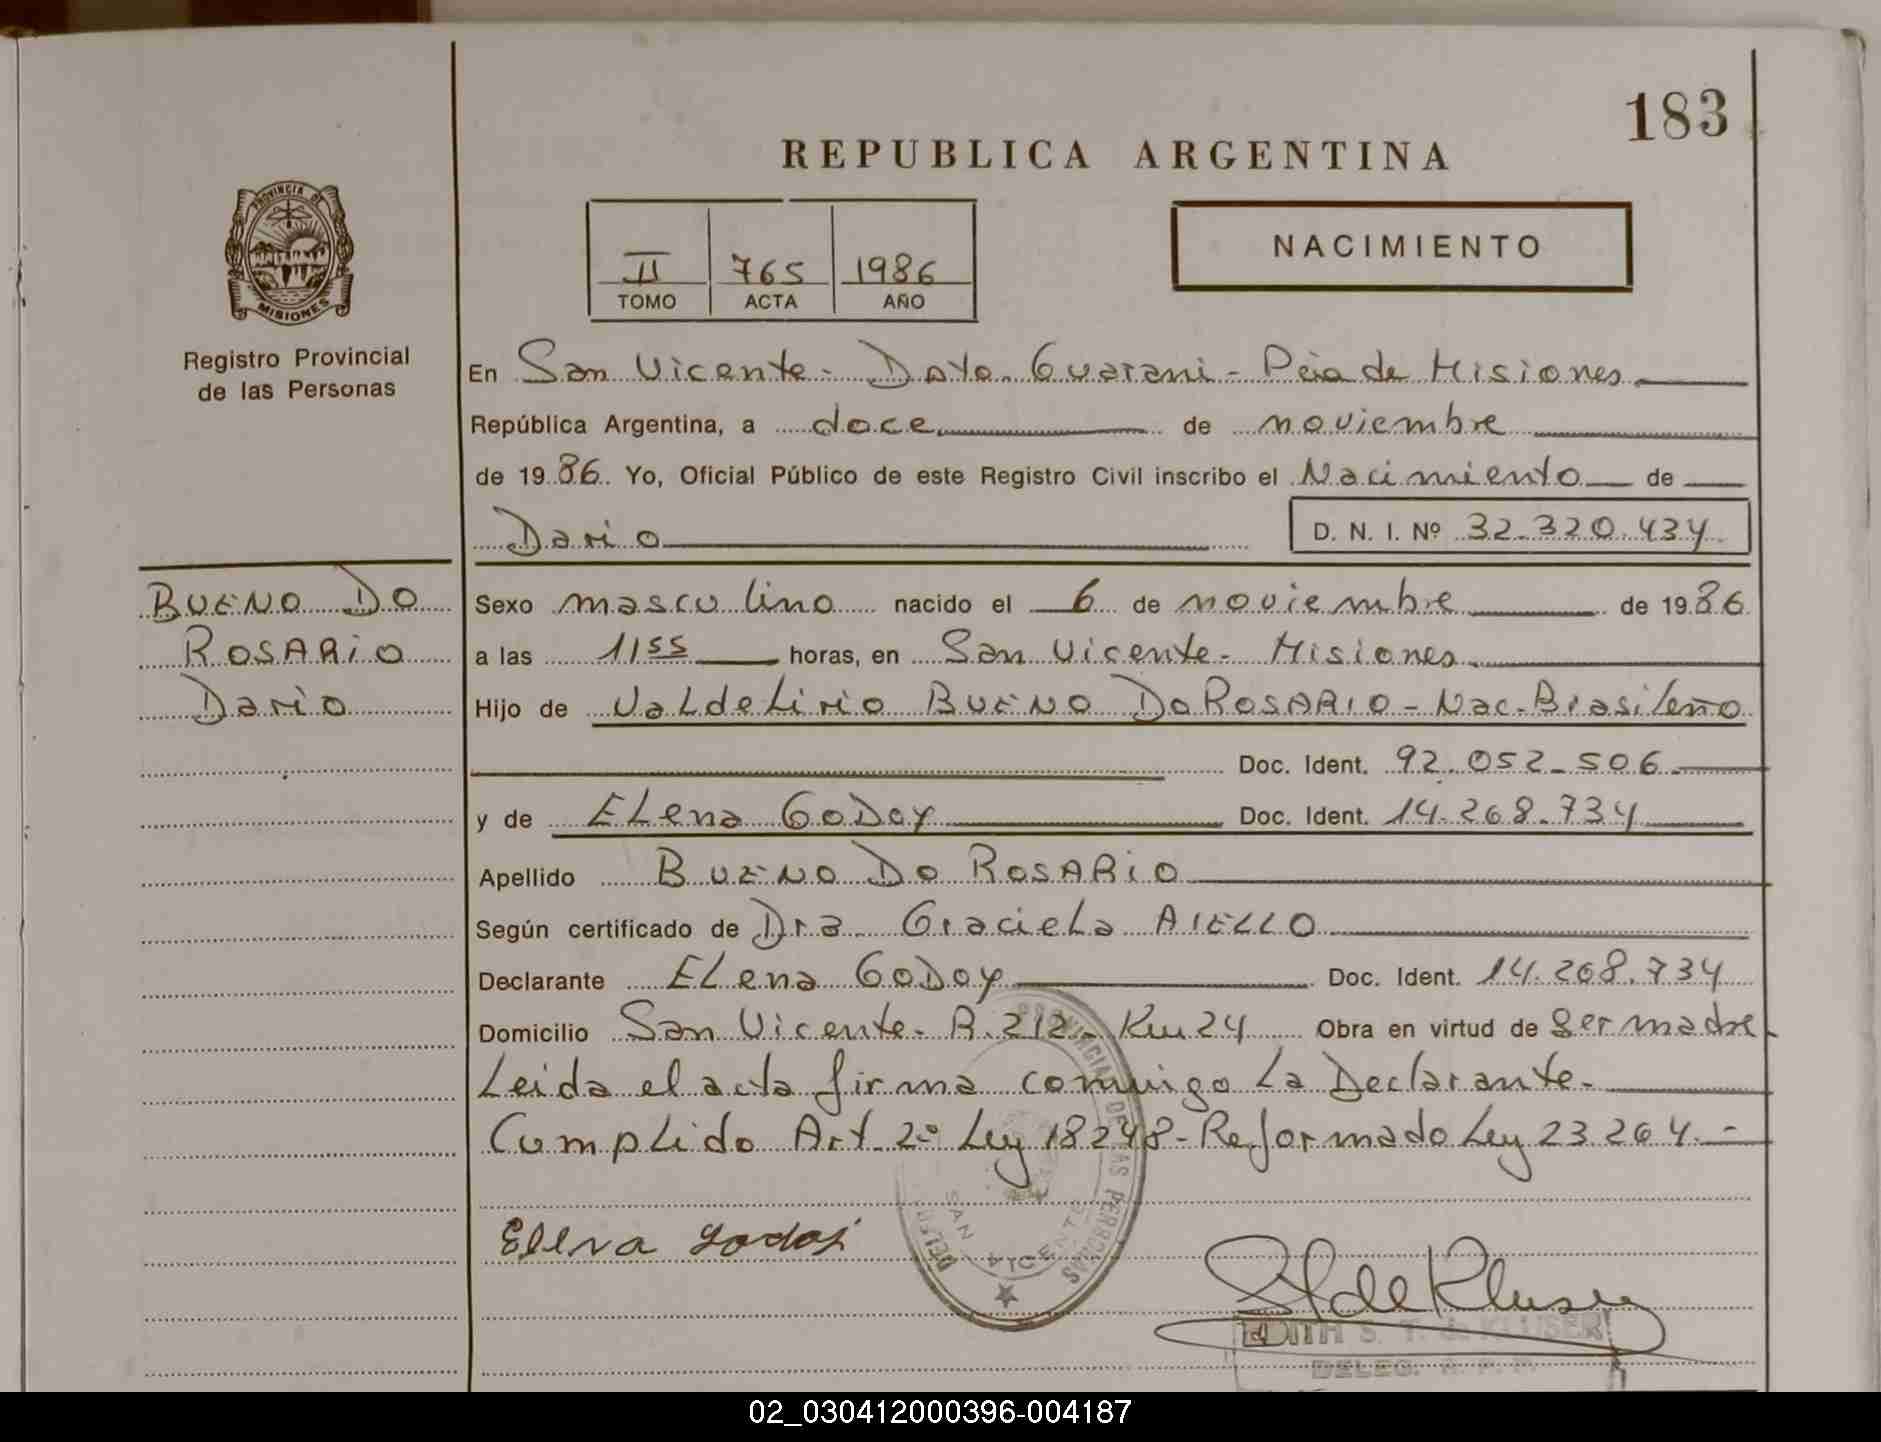 183
REPUBLICA ARGENTINA
PROVINCIA DE
MISIONES
Registro Provincial
de las Personas
II 765 1986
TOMO ACTA AÑO
NACIMIENTO
En San Vicente - Dpto. Guarani - Pcia de Misiones
República Argentina, a doce de noviembre
de 1986. Yo, Oficial Público de este Registro Civil inscribo el Nacimiento de
Dario D. N. I. Nº 32.320.434
BUENO DO
ROSARIO
Dario
Sexo masculino nacido el 6 de noviembre de 1986
a las 1155 horas, en San Vicente - Misiones
Hijo de Valdelirio BUENO DO ROSARIO - Nac. Brasileño
Doc. Ident. 92.052.506
y de Elena GODOY Doc. Ident. 14.268.734
Apellido BUENO DO ROSARIO
Según certificado de Dra. Graciela AIELLO
Declarante Elena GODOY Doc. Ident. 14.268.734
Domicilio San Vicente - R. 212 - Km 24 Obra en virtud de Ser madre
Leida el acta firma conmigo La Declarante.
Cumplido Art. 2º Ley 18248 - Reformado Ley 23264. -
PROVINCIAL DE LAS PERSONAS
SAN VICENTE
Elena
EDITH S. T. de KLUSER
DELEG.
02_030412000396-004187